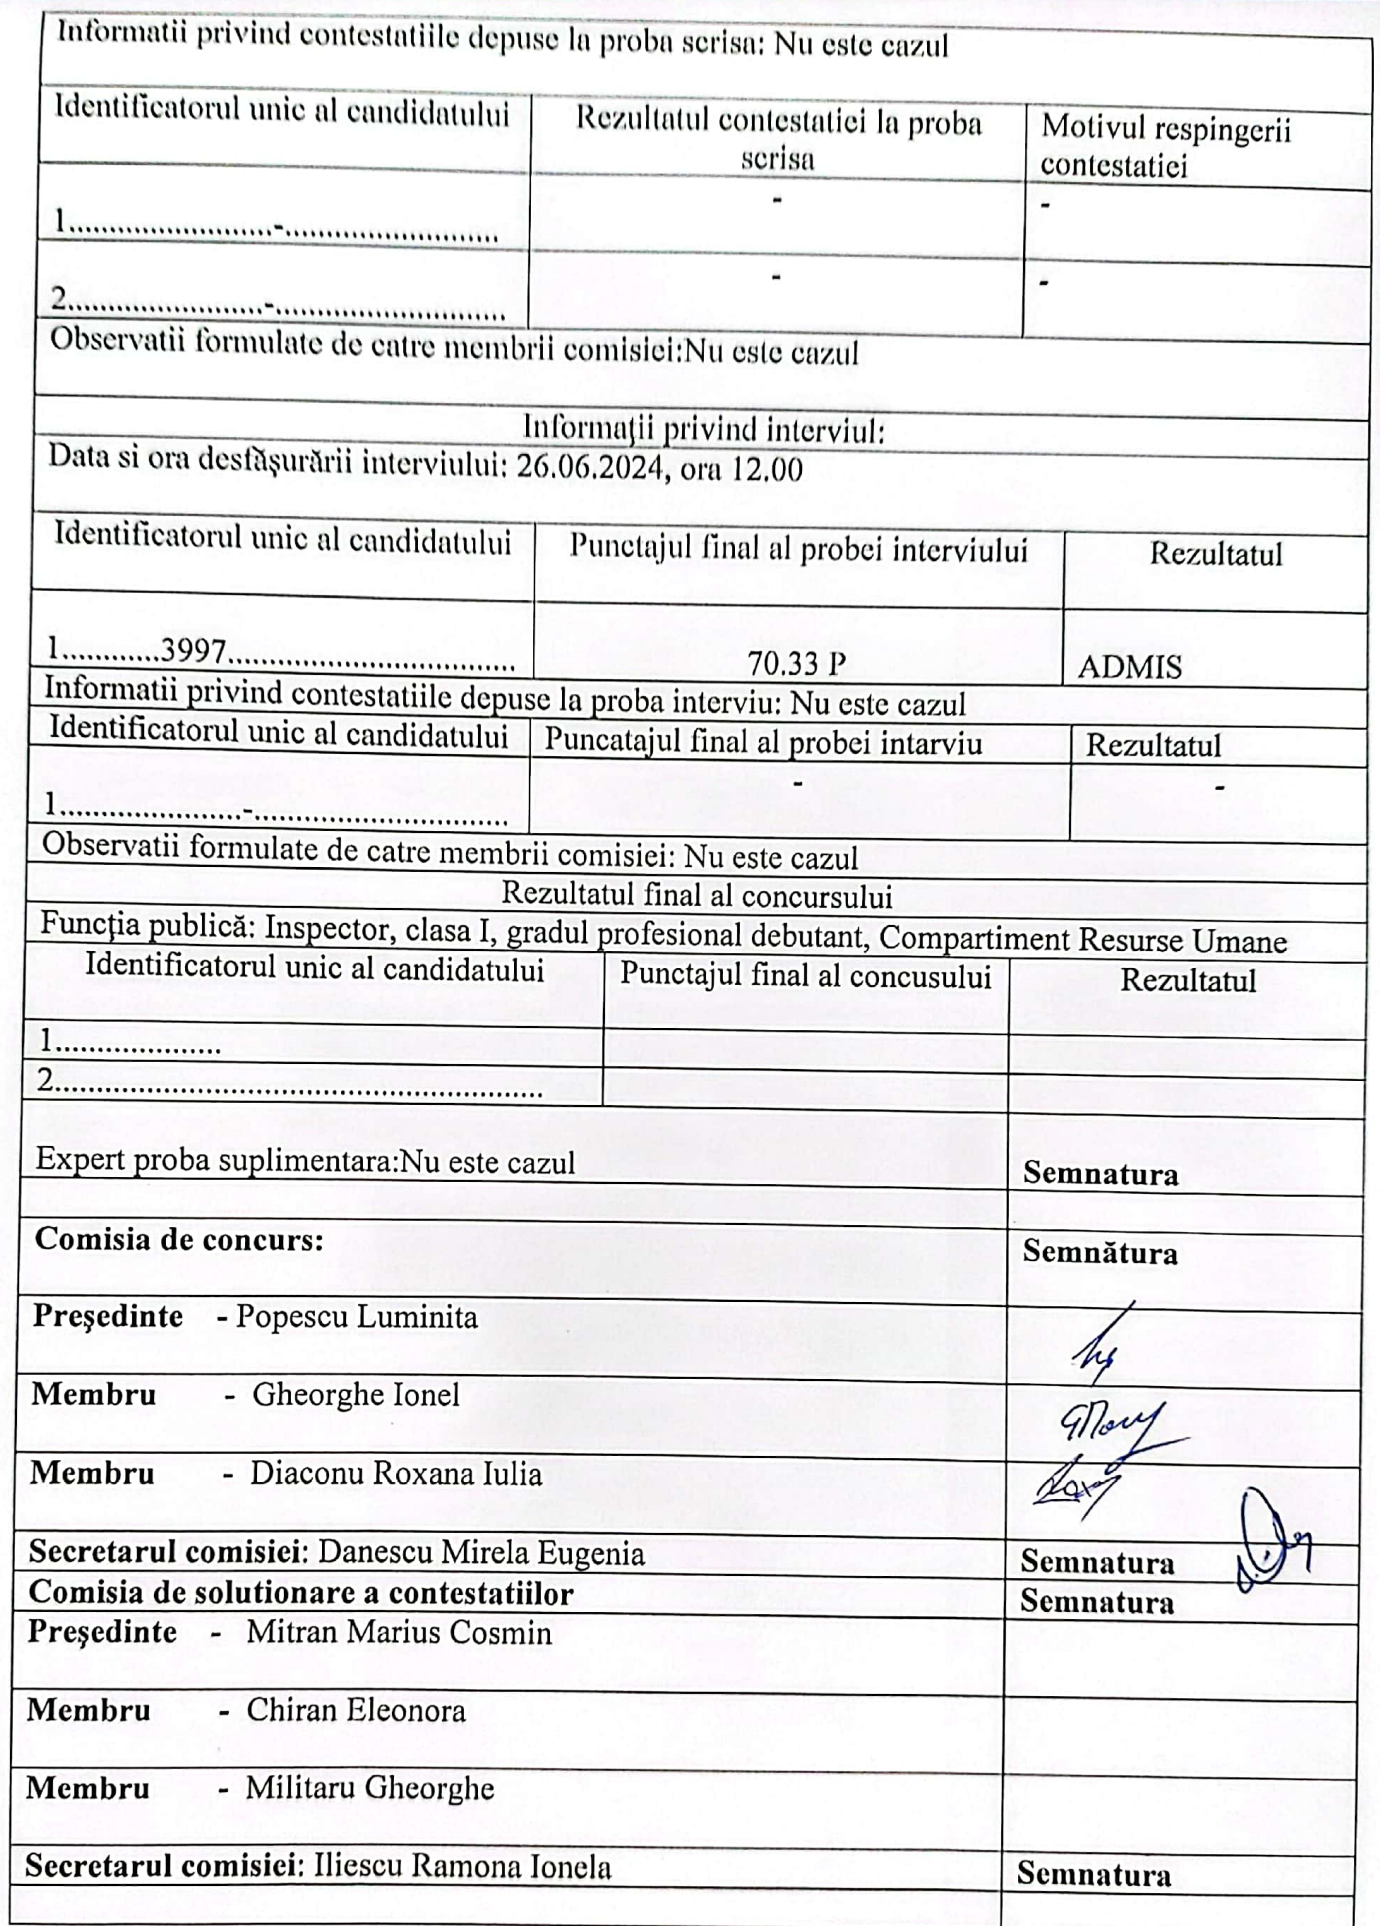 Informatii privind contestatiile depuse la proba scrisa: Nu este cazul
Identificatorul unic al candidatului
Rezultatul contestatiei la proba
scrisa
Motivul respingerii
contestatiei
1.........................-..........................
-
-
2........................-............................
-
-
Observatii formulate de catre membrii comisiei:Nu este cazul
Informaţii privind interviul:
Data si ora desfăşurării interviului: 26.06.2024, ora 12.00
Identificatorul unic al candidatului
Punctajul final al probei interviului
Rezultatul
1............3997...................................
70.33 P
ADMIS
Informatii privind contestatiile depuse la proba interviu: Nu este cazul
Identificatorul unic al candidatului
Puncatajul final al probei intarviu
Rezultatul
1......................-...............................
-
-
Observatii formulate de catre membrii comisiei: Nu este cazul
Rezultatul final al concursului
Funcţia publică: Inspector, clasa I, gradul profesional debutant, Compartiment Resurse Umane
Identificatorul unic al candidatului
Punctajul final al concusului
Rezultatul
1....................
2...........................................................
Expert proba suplimentara:Nu este cazul
Semnatura
Comisia de concurs:
Semnătura
Preşedinte - Popescu Luminita
Membru - Gheorghe Ionel
Membru - Diaconu Roxana Iulia
Secretarul comisiei: Danescu Mirela Eugenia
Semnatura
Comisia de solutionare a contestatiilor
Semnatura
Preşedinte - Mitran Marius Cosmin
Membru - Chiran Eleonora
Membru - Militaru Gheorghe
Secretarul comisiei: Iliescu Ramona Ionela
Semnatura